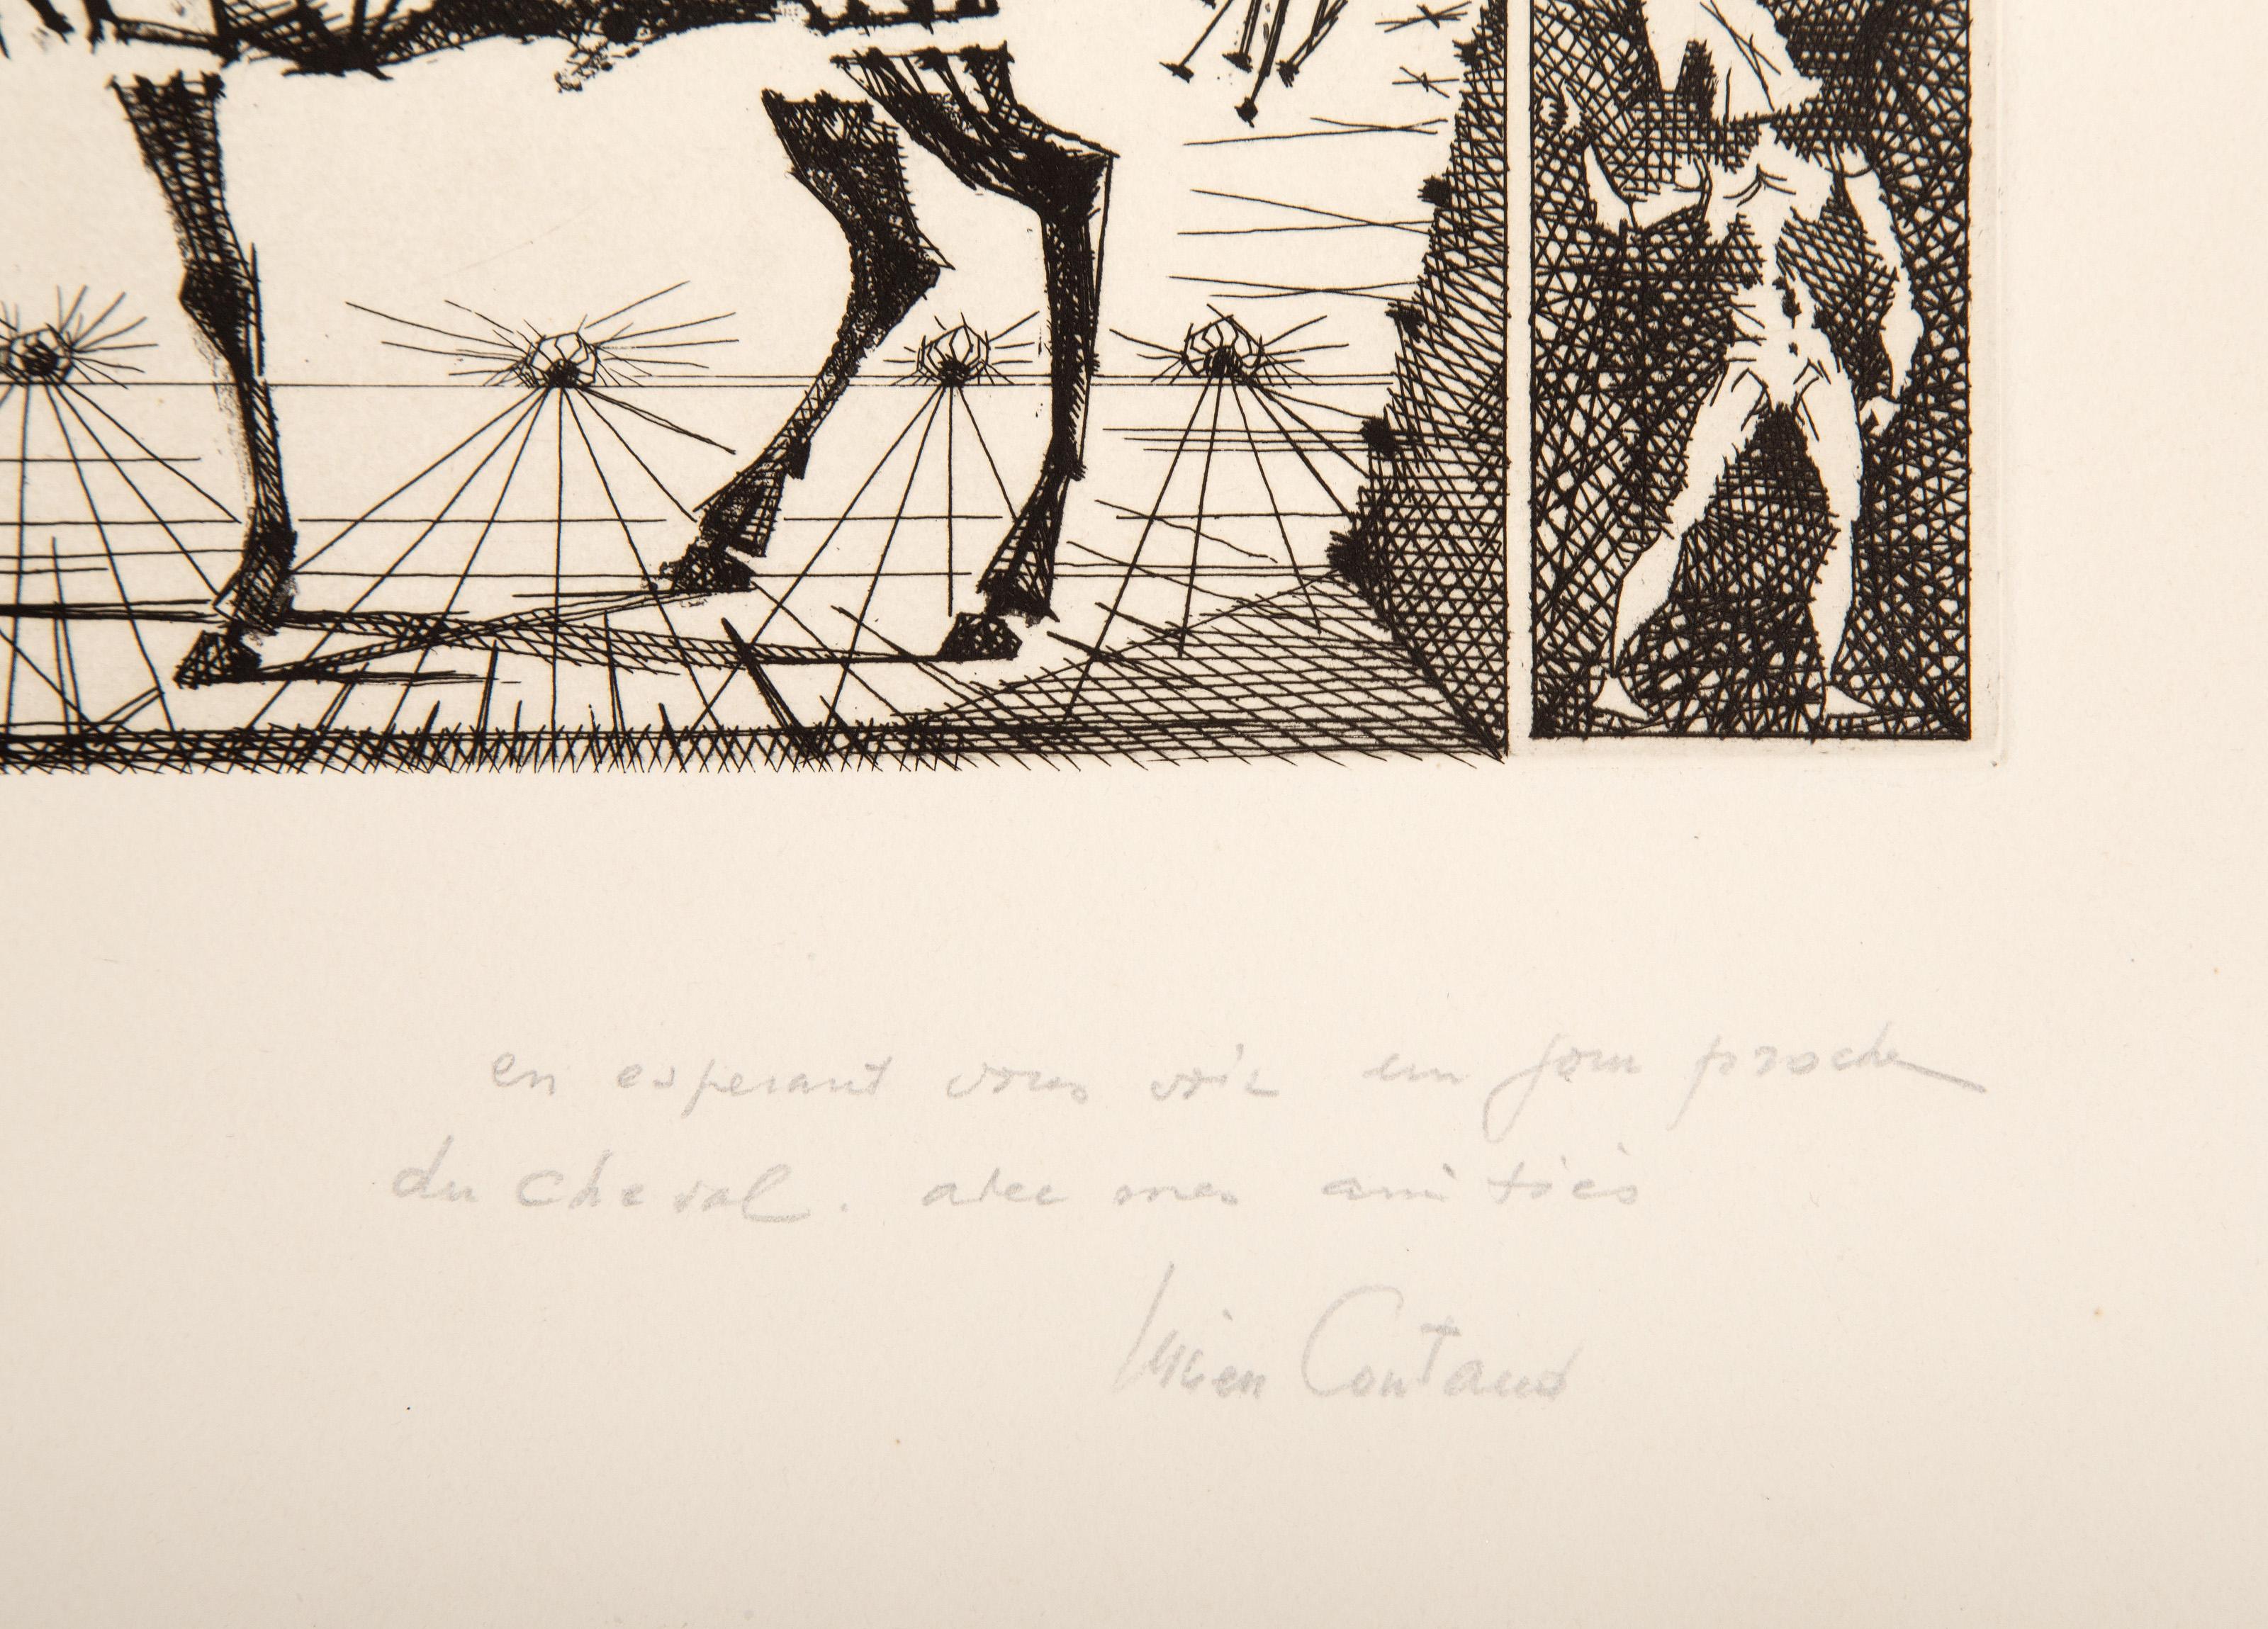 en esperant vous voir un jour proche
du cheval. avec mes amitiés
Lucien Coutaud